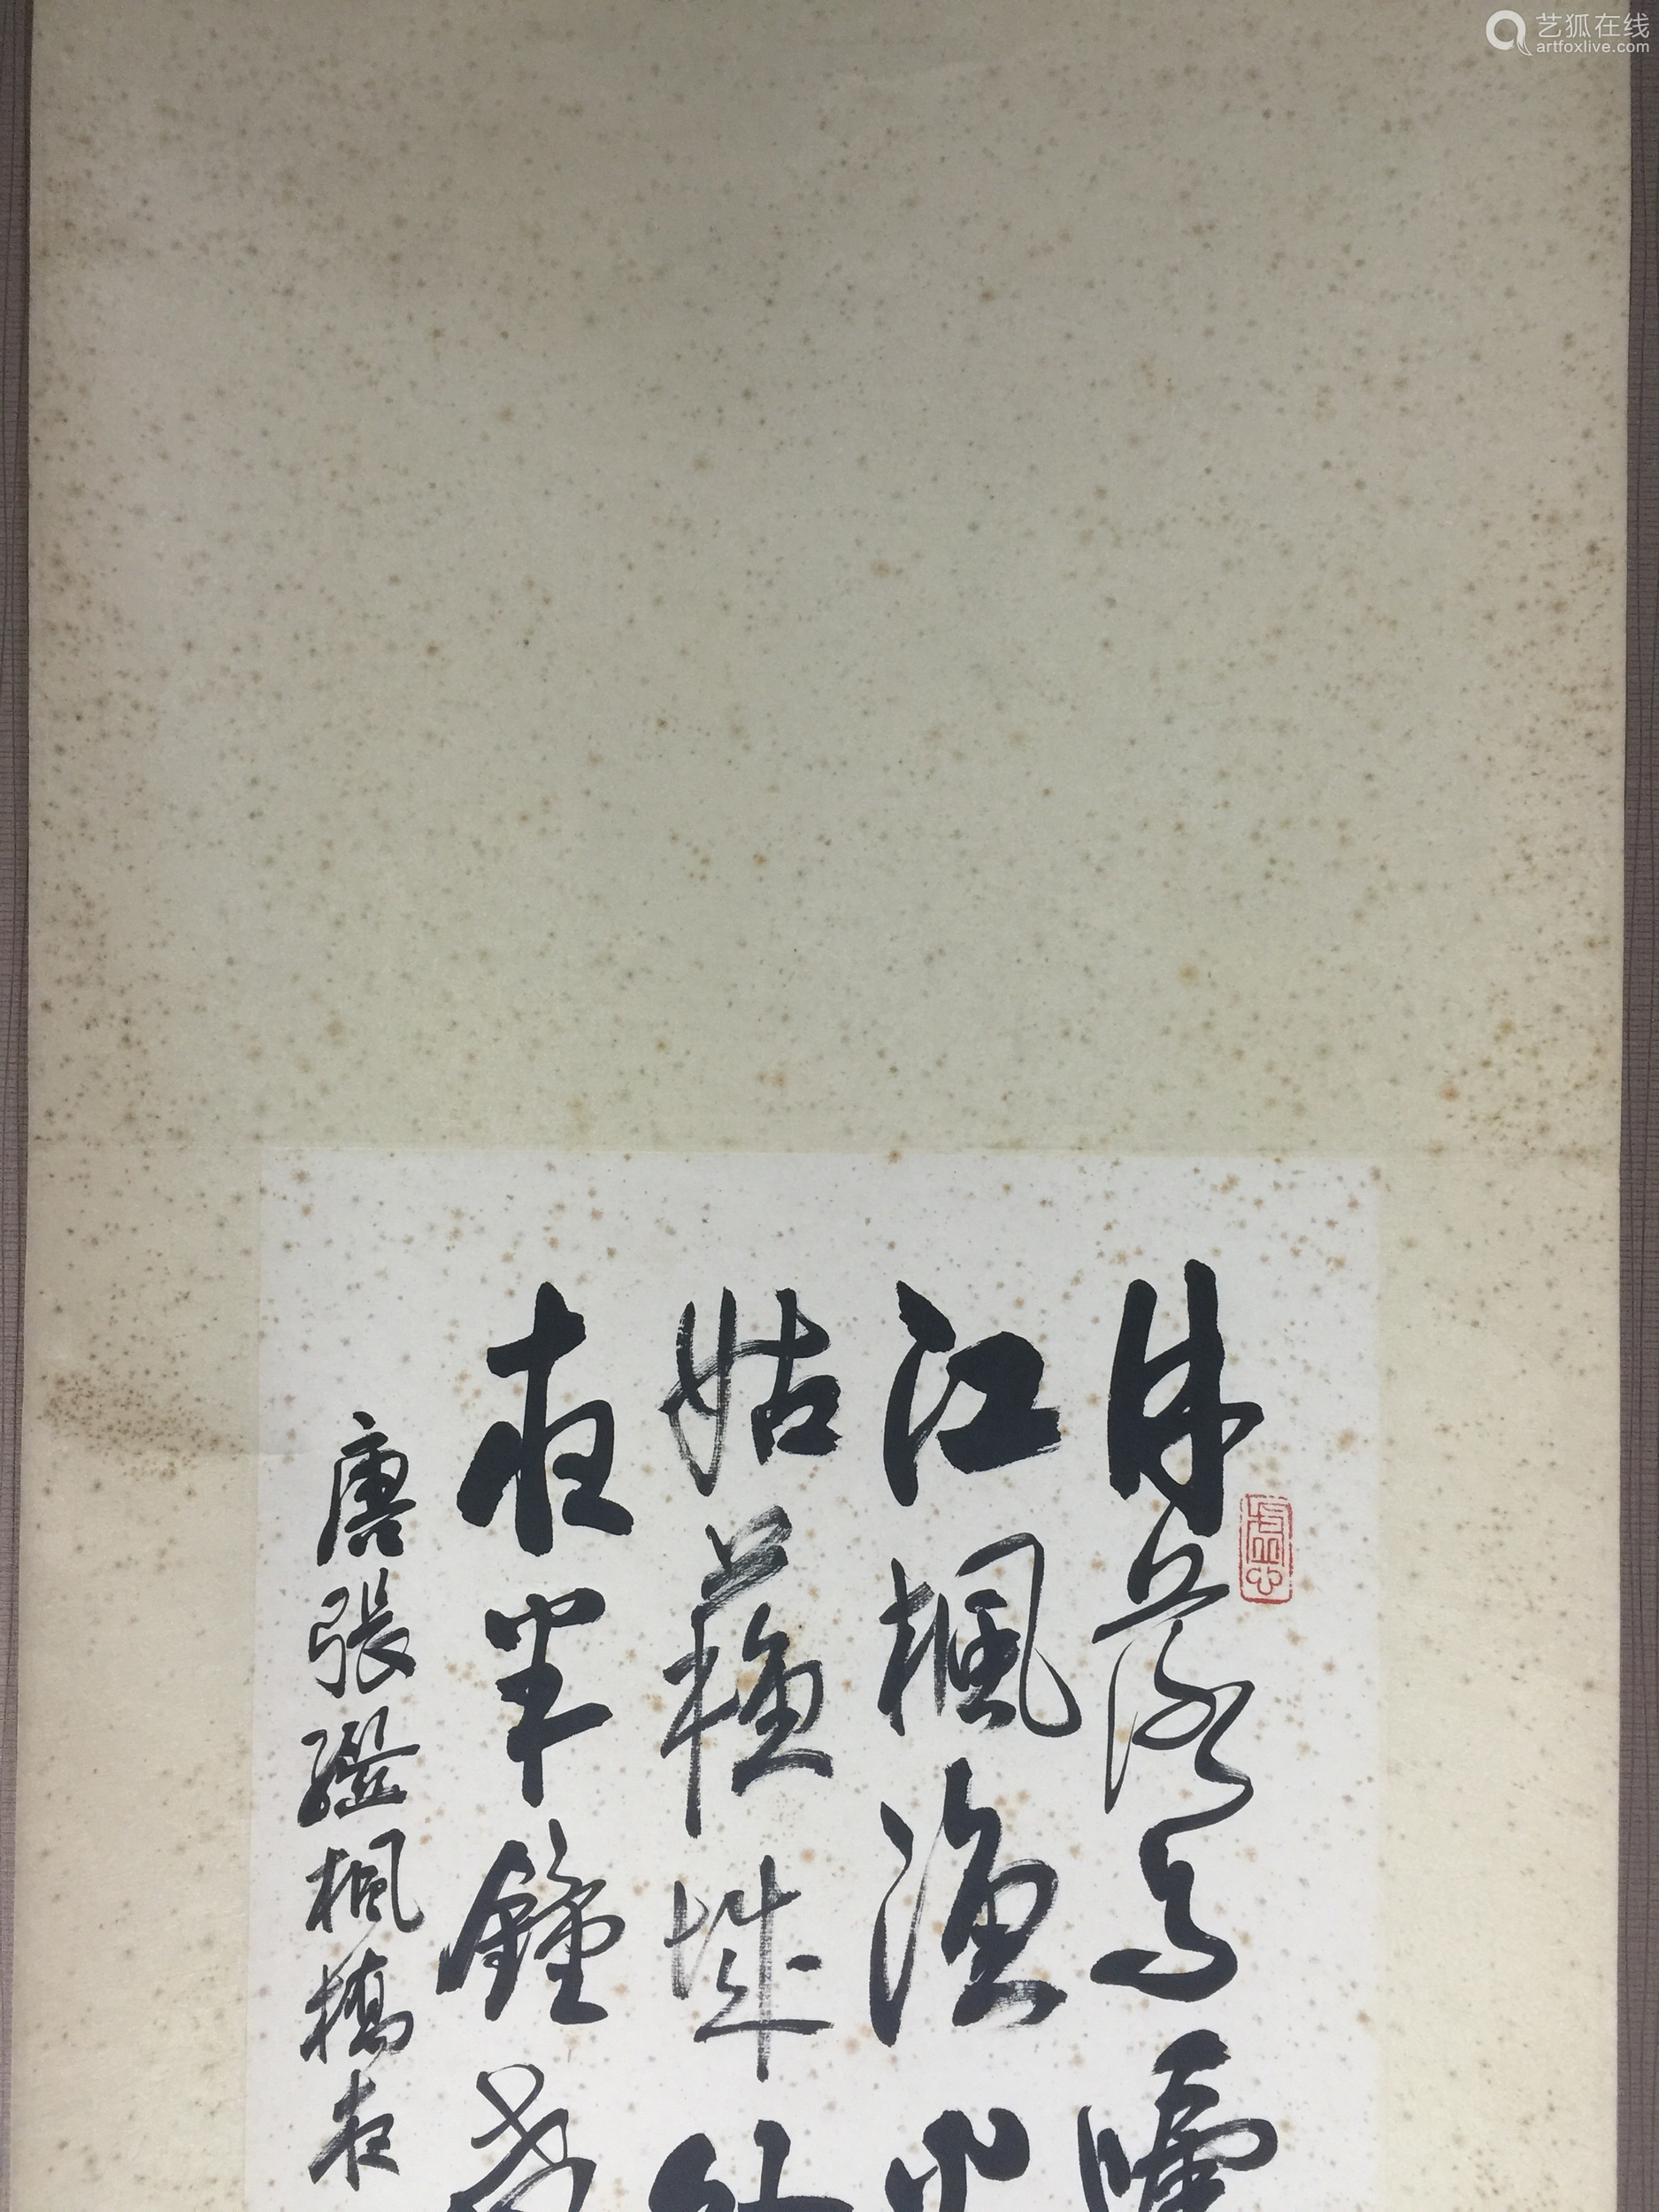 月落烏啼
江楓漁火
姑蘇城外
夜半鐘聲
唐張繼楓橋夜
艺狐在线
artfoxlive.com